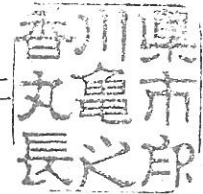 香川県
丸亀市
長之印